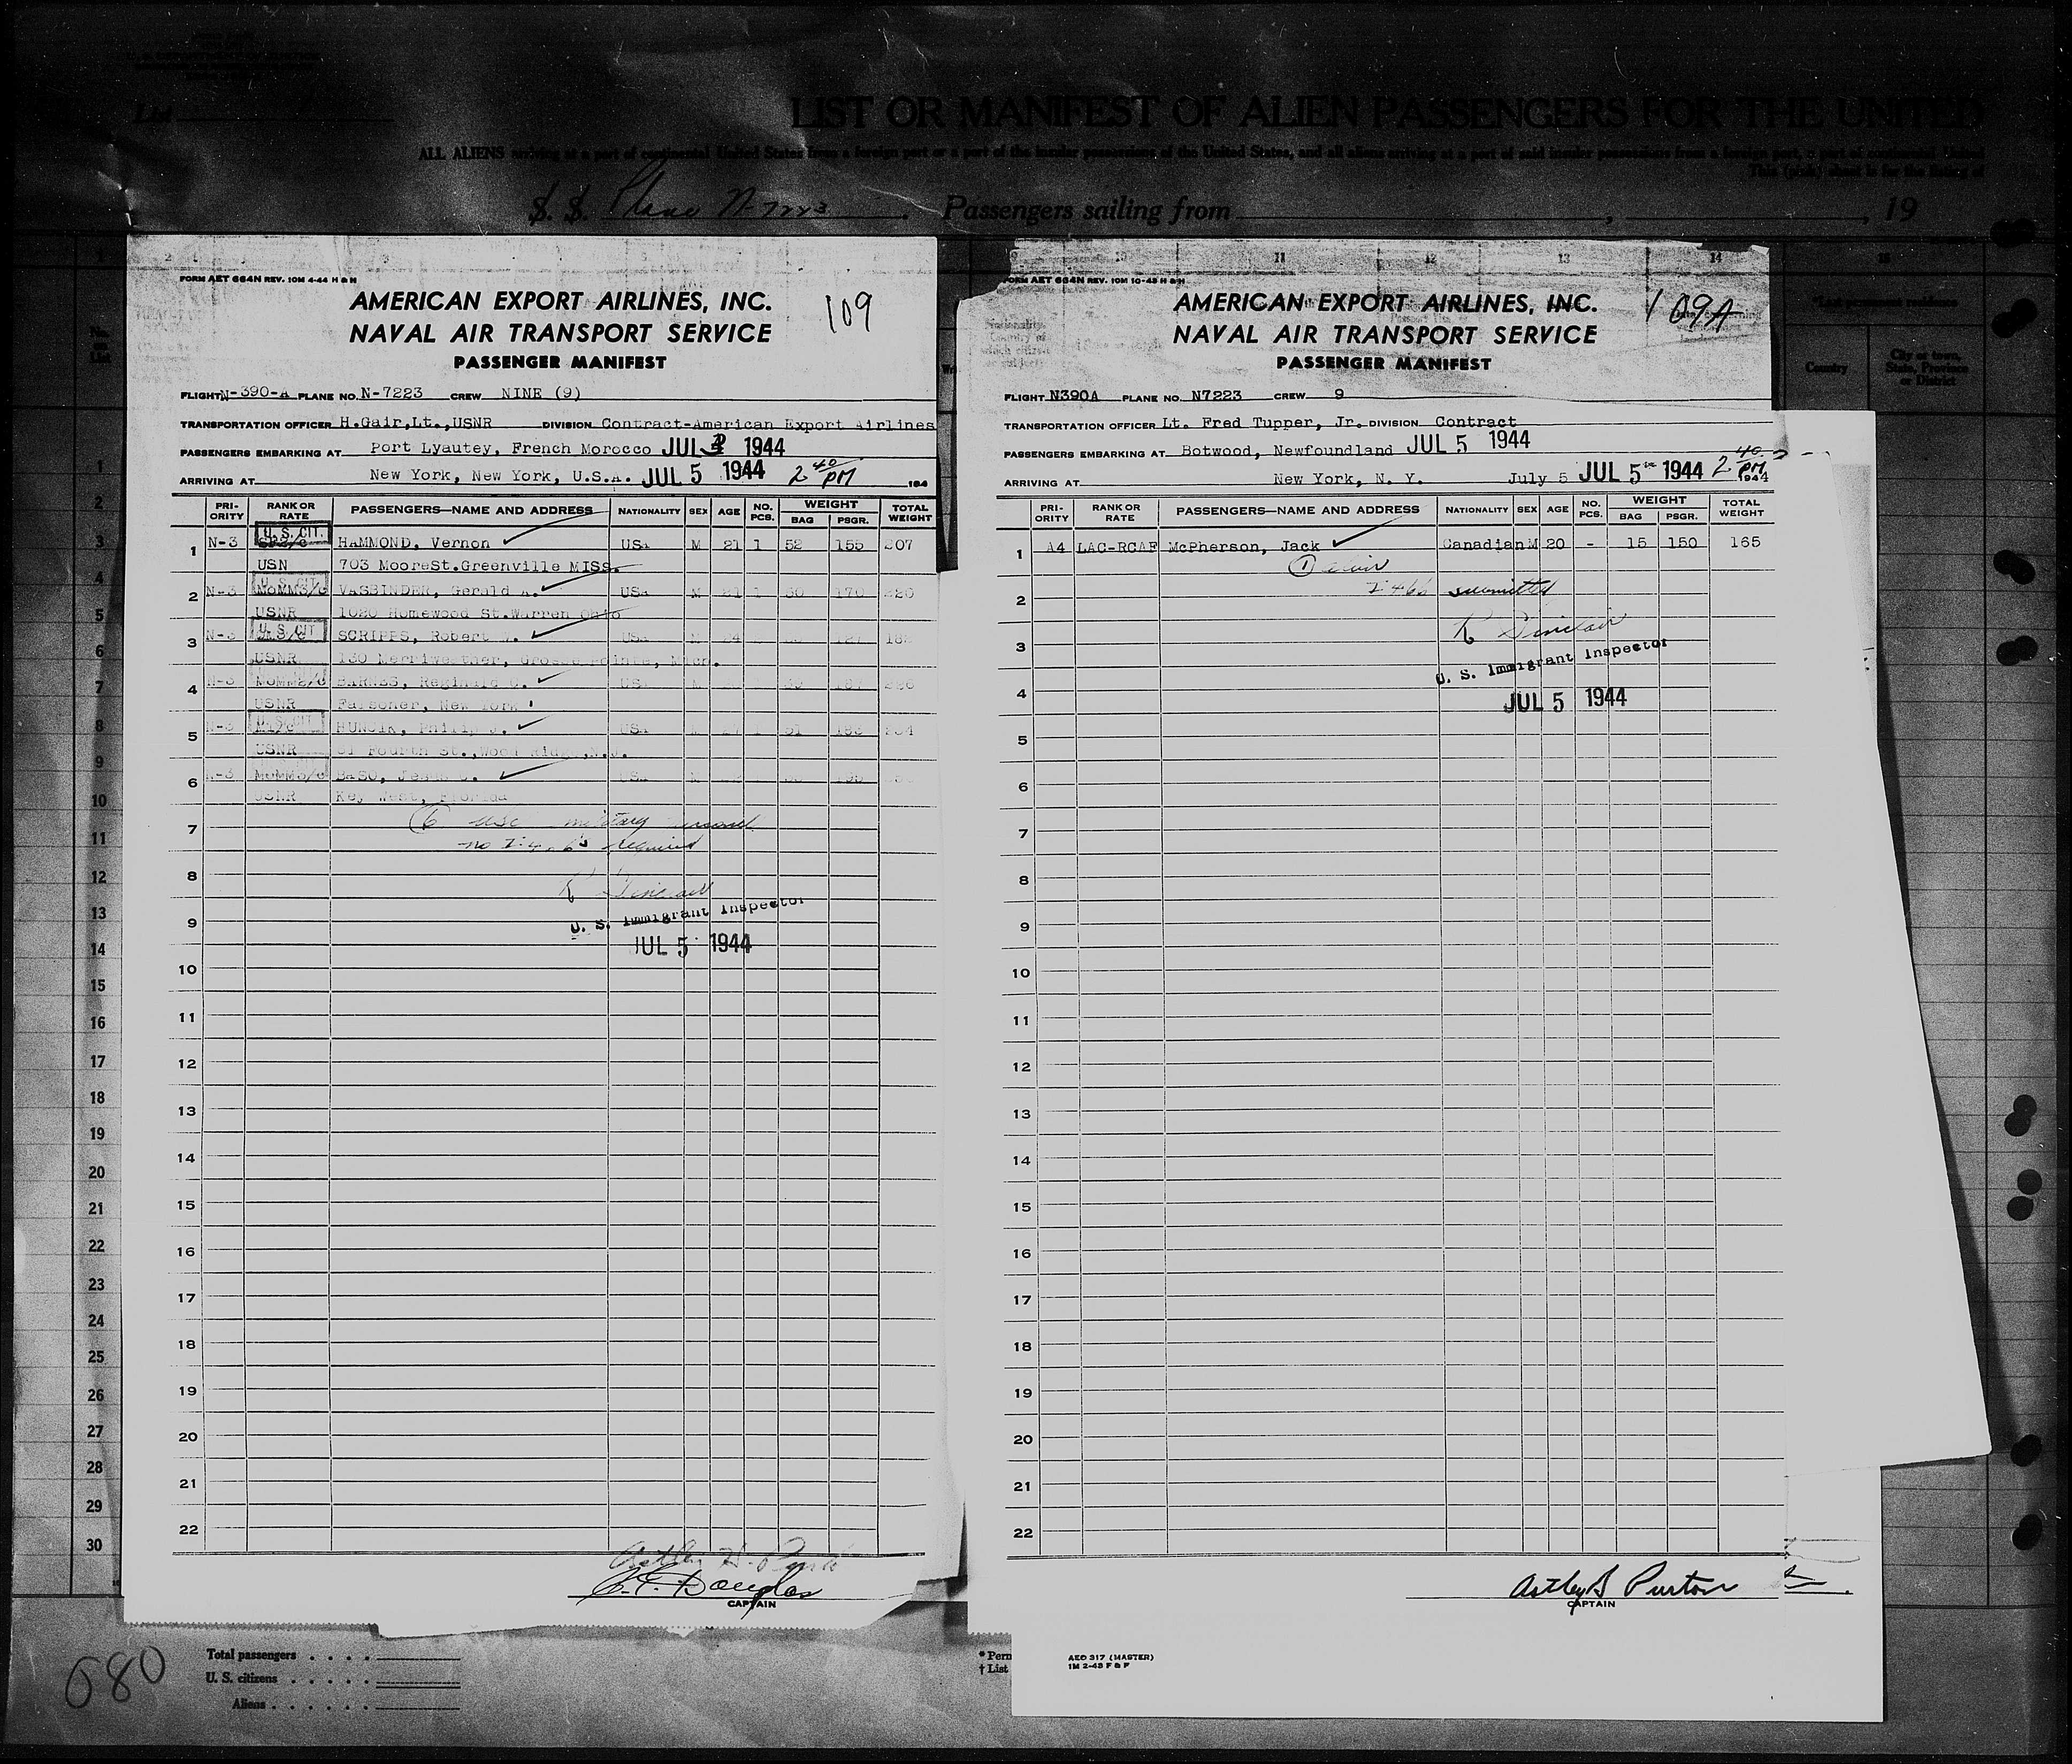 List
LIST OR MANIFEST OF ALIEN PASSENGERS FOR THE UNITED
ALL ALIENS arriving at a port of continental United States from a foreign port or a port of the insular possessions of the United States, and all aliens arriving at a port of said insular possessions from a foreign port, a port of continental United
S. S. Plane N-7223 Passengers sailing from , 19
FORM AET 664N REV. 10M 4-44 H & H
109
AMERICAN EXPORT AIRLINES, INC.
NAVAL AIR TRANSPORT SERVICE
PASSENGER MANIFEST
FLIGHT N-390-A PLANE NO. N-7223 CREW NINE (9)
TRANSPORTATION OFFICER H.Gair,Lt.,USNR DIVISION Contract-American Export Airlines
PASSENGERS EMBARKING AT Port Lyautey, French Morocco JUL 1944
ARRIVING AT New York, New York, U.S.A. JUL 5 1944 2 40 PM 194
PRI-ORITY RANK OR RATE PASSENGERS—NAME AND ADDRESS NATIONALITY SEX AGE NO. PCS. WEIGHT BAG PSGR. TOTAL WEIGHT
U. S. CIT.
1 N-3 HAMMOND, Vernon USA M 21 1 52 155 207
USN 703 MooreSt.Greenville MISS.
U. S. CIT.
2 N-3 MoMM3/c VASBINDER, Gerald A. USA M 21 1 50 170 220
USNR 1020 Homewood St.Warren Ohio
U. S. CIT.
3 N-3 SCRIPPS, Robert W. USA M
USNR 130 Merriweather, Grosse Pointe, Mich.
4 N-3 MoMM2/c BARNES, Reginald C. USA M
USNR Falconer, New York
U. S. CIT.
5 N-3 HUNCIK, Philip J. USA M 1 51 183 234
USNR 61 Fourth St.,Wood Ridge,N.J.
6 N-3 MoMM3/c BASO, Jesus C. USA M
USNR Key West, Florida
7 (6) USC military personnel
no I-466's required
8 R Sinclair
9 U. S. Immigrant Inspector
JUL 5 1944
10
11
12
13
14
15
16
17
18
19
20
21
22
C. E. Douglas
CAPTAIN
FORM AET 664N REV. 10M 10-43 H & H
109A
AMERICAN EXPORT AIRLINES, INC.
NAVAL AIR TRANSPORT SERVICE
PASSENGER MANIFEST
FLIGHT N390A PLANE NO. N7223 CREW 9
TRANSPORTATION OFFICER Lt. Fred Tupper, Jr. DIVISION Contract
PASSENGERS EMBARKING AT Botwood, Newfoundland JUL 5 1944
ARRIVING AT New York, N. Y. July 5 JUL 5 1944 2 40 PM 1944
PRI-ORITY RANK OR RATE PASSENGERS—NAME AND ADDRESS NATIONALITY SEX AGE NO. PCS. WEIGHT BAG PSGR. TOTAL WEIGHT
1 A4 LAC-RCAF McPherson, Jack Canadian M 20 - 15 150 165
(1) alien
2 I 466 submitted
3 R Sinclair
U. S. Immigrant Inspector
4 JUL 5 1944
5
6
7
8
9
10
11
12
13
14
15
16
17
18
19
20
21
22
Astley B Purton
CAPTAIN
AEO 317 (MASTER)
1M 2-43 F & F
9 10 11 12 13 14 15
Country
City or town, State, Province or District
1
2
3
4
5
6
7
8
9
10
11
12
13
14
15
16
17
18
19
20
21
22
23
24
25
26
27
28
29
30
680
Total passengers
U. S. citizens
Aliens
* Perm
† List